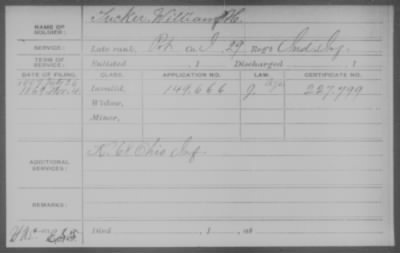 NAME OF SOLDIER: Tucker, William H.
SERVICE: Late rank, Pvt. Co. I, 29 Reg't Ind. Inf.
TERM OF SERVICE: Enlisted , 1 Discharged , 1
DATE OF FILING. CLASS. APPLICATION NO. LAW. CERTIFICATE NO.
Invalid, 149,666 227,799
Widow,
Minor,
ADDITIONAL SERVICES: K. 68 Ohio Inf.
REMARKS:
Died , 1 , at